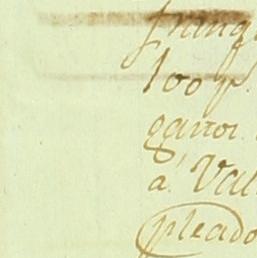 franq
100 p.
ganor.
á Val
pleado